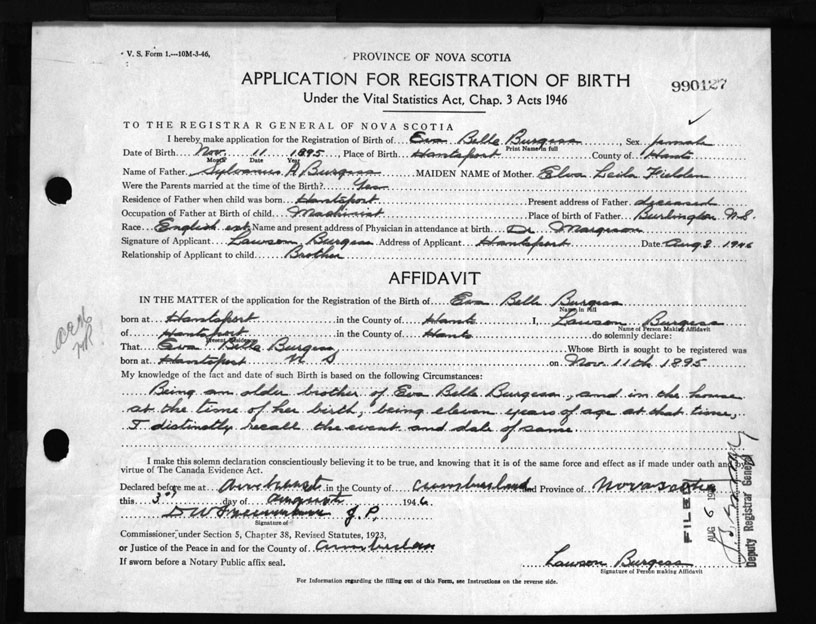 V. S. Form 1.—10M-3-46.
PROVINCE OF NOVA SCOTIA
APPLICATION FOR REGISTRATION OF BIRTH
990127
Under the Vital Statistics Act, Chap. 3 Acts 1946
TO THE REGISTRAR GENERAL OF NOVA SCOTIA
I hereby make application for the Registration of Birth of Eva Belle Burgess Sex female
Print Name in full
Date of Birth Nov. 11 1895 Place of Birth Hantsport County of Hants
Month Date Year
Name of Father Sylvanus A Burgess MAIDEN NAME of Mother Elva Leila Fielden
Were the Parents married at the time of the Birth? Yes
Residence of Father when child was born Hantsport Present address of Father deceased
Occupation of Father at Birth of child Machinist Place of birth of Father Burlington N.S.
Race English ext Name and present address of Physician in attendance at birth Dr Margeson
Signature of Applicant Lawson Burgess Address of Applicant Hantsport Date Aug 3 1946
Relationship of Applicant to child Brother
AFFIDAVIT
IN THE MATTER of the application for the Registration of the Birth of Eva Belle Burgess
Name in full
born at Hantsport in the County of Hants I, Lawson Burgess
Name of Person Making Affidavit
of Hantsport in the County of Hants do solemnly declare:
Present Residence
That Eva Belle Burgess Whose Birth is sought to be registered was
born at Hantsport N S on Nov. 11th 1895
My knowledge of the fact and date of such Birth is based on the following Circumstances:
Being an older brother of Eva Belle Burgess, and in the house
at the time of her birth, being eleven years of age at that time,
I distinctly recall the event and date of same
I make this solemn declaration conscientiously believing it to be true, and knowing that it is of the same force and effect as if made under oath and by
virtue of The Canada Evidence Act.
Declared before me at Amherst in the County of Cumberland and Province of Nova Scotia
this 3rd day of August 1946
J.P.
Signature of
Commissioner, under Section 5, Chapter 38, Revised Statutes, 1923,
or Justice of the Peace in and for the County of Cumberland
If sworn before a Notary Public affix seal.
Lawson Burgess
Signature of Person making Affidavit
For Information regarding the filling out of this Form, see Instructions on the reverse side.
FILED
AUG 6 194
Deputy Registrar General